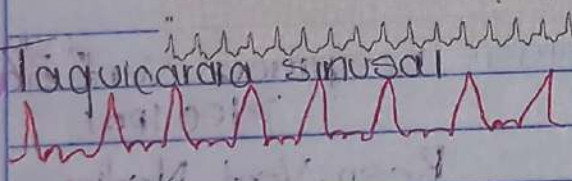 Taquicardia sinusal